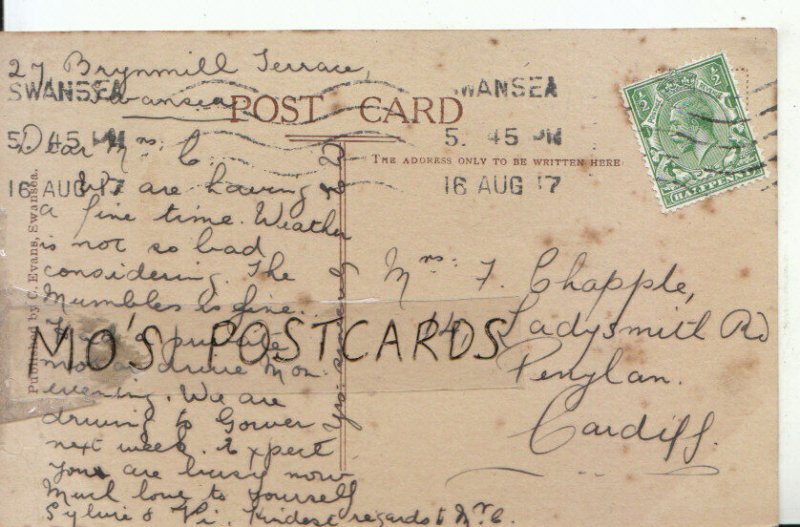 27 Brynmill Terrace,
Swansea
SWANSEA
5. 45 PM
16 AUG 17
SWANSEA
5. 45 PM
16 AUG 17
POST CARD
THE ADDRESS ONLY TO BE WRITTEN HERE
HALFPENNY
Published by C. Evans, Swansea.
Dear Mrs. C.
We are having
a fine time. Weather
is not so bad
considering. The
Mumbles is fine.
Had a private
motor drive Mon:
evening. We are
driving to Gower
next week. Expect
you are busy now
Much love to yourself
Sylvie & Vi. Kindest regards to Mr C.
Mrs: F. Chapple,
14, Ladysmith Rd
Penylan.
Cardiff.
MO'S POSTCARDS